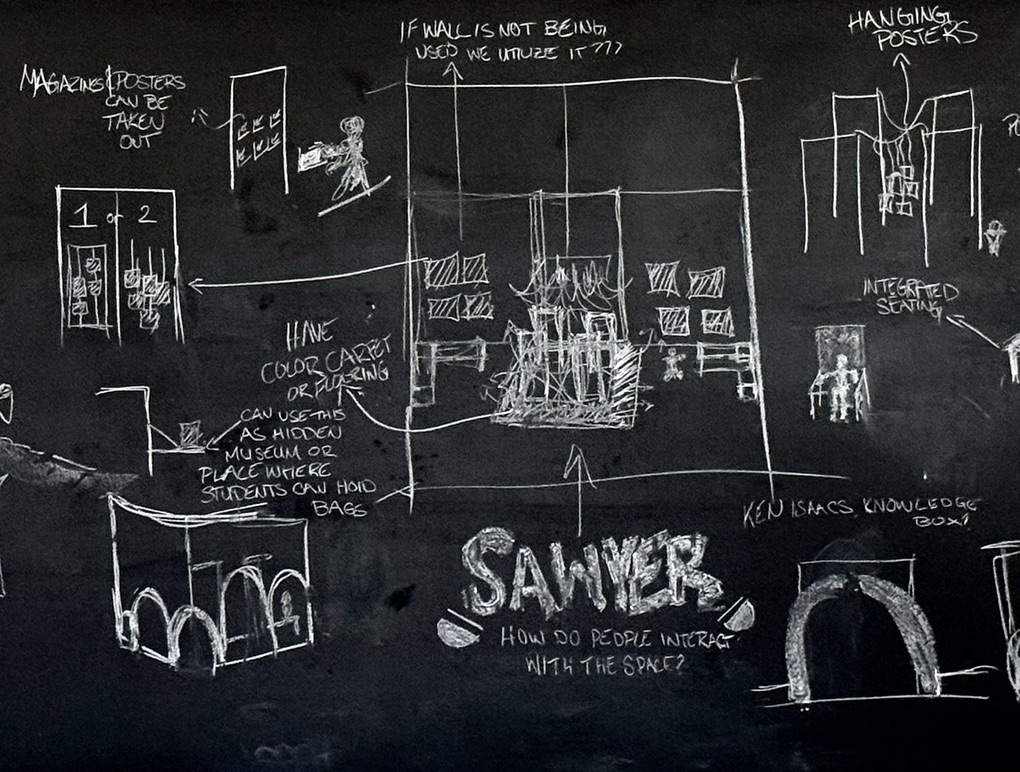 IF WALL IS NOT BEING
USED WE UTILIZE IT???
HANGING
POSTERS
MAGAZINES/POSTERS
CAN BE
TAKEN
OUT
1 or 2
INTEGRATED
SEATING
HAVE
COLOR CARPET
OR FLOORING
CAN USE THIS
AS HIDDEN
MUSEUM OR
PLACE WHERE
STUDENTS CAN HOLD
BAGS
KEN ISAACS KNOWLEDGE
BOX?
SAWYER
HOW DO PEOPLE INTERACT
WITH THE SPACE?